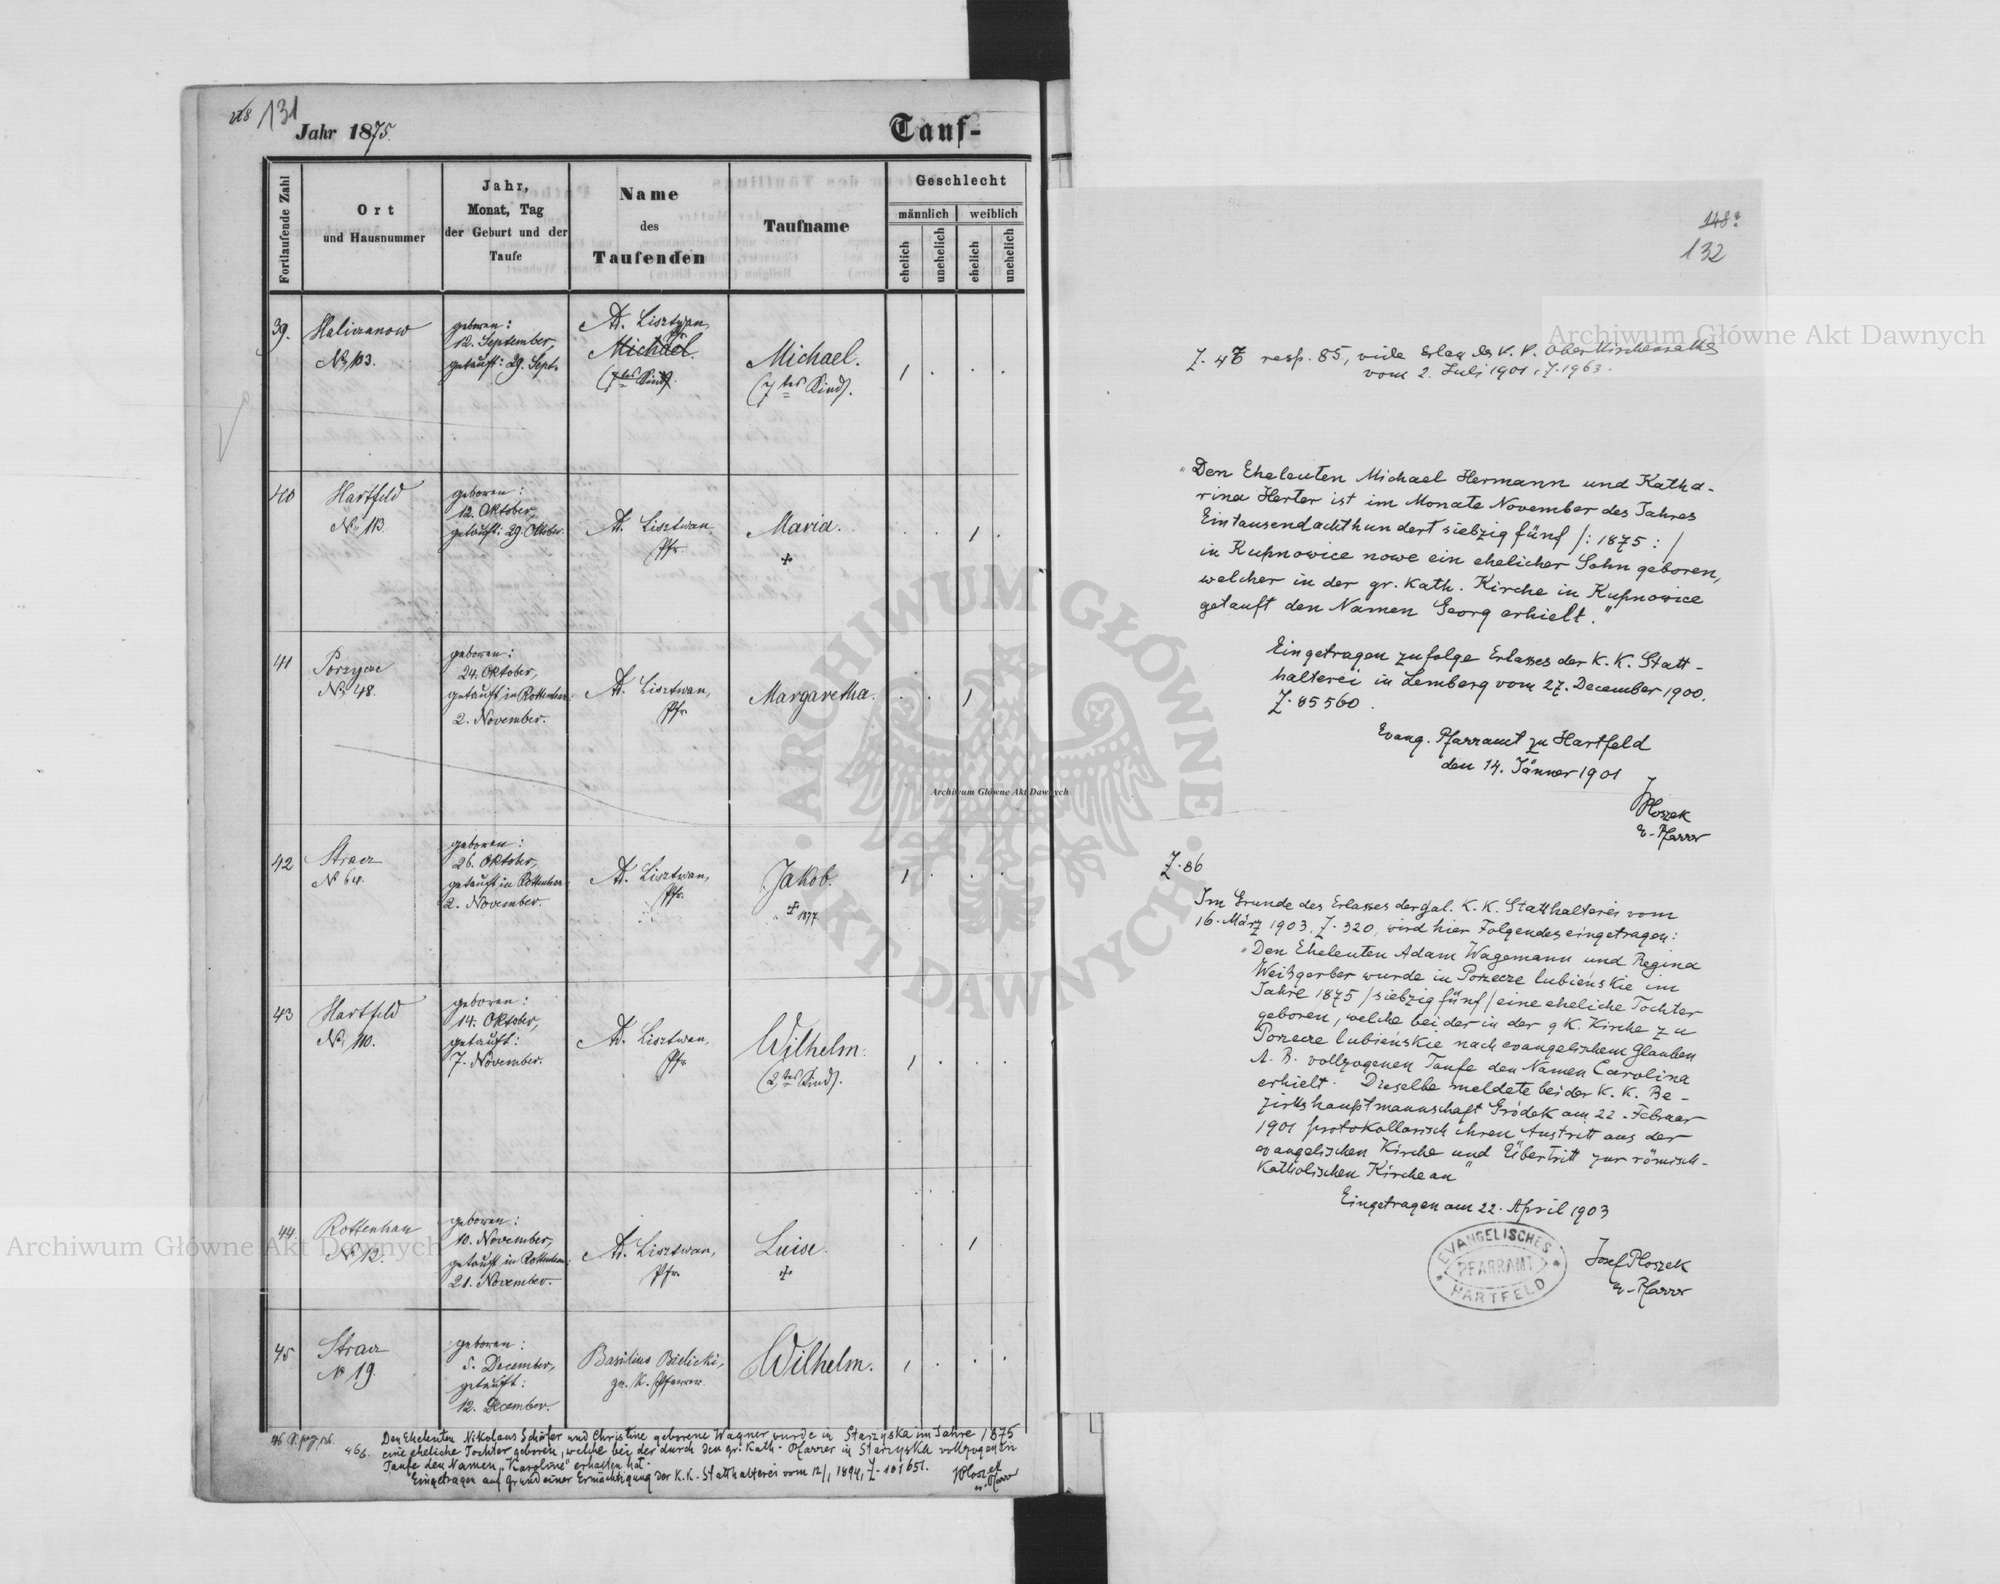 131
Jahr 1875.
Tauf-
Fortlaufende Zahl
Ort
und Hausnummer
Jahr,
Monat, Tag
der Geburt und der
Taufe
Name
des
Taufenden
Taufname
Geschlecht
männlich
weiblich
ehelich
unehelich
ehelich
unehelich
39.
Haliczanow
№ 103.
geboren:
12. September,
getauft: 29. Sept.
A. Lisztwan,
Michael.
(7tes Kind).
Michael.
(7tes Kind).
40
Hartfeld
№ 113.
geboren:
12. Oktober,
getauft: 29. Oktober.
A. Lisztwan,
Pfr.
Maria.
+
41
Porzycze
№ 48.
geboren:
24. Oktober,
getauft in Rottenhan
2. November.
A. Lisztwan,
Pfr.
Margaretha.
42
Stracz
№ 64.
geboren:
26. Oktober,
getauft in Rottenhan
2. November.
A. Lisztwan,
Pfr.
Jakob.
+ 1877
43
Hartfeld
№ 110.
geboren:
14. Oktober,
getauft:
7. November.
A. Lisztwan,
Pfr.
Wilhelm.
(2tes Kind).
44.
Rottenhan
№ 12.
geboren:
10. November,
getauft in Rottenhan
21. November.
A. Lisztwan,
Pfr.
Luise.
+
45
Stracz
№ 19.
geboren:
5. December,
getauft:
12. December.
Basilius Bielicki,
gr. K. Pfarrer.
Wilhelm.
46b. Den Eheleuten Nikolaus Schäfer und Christine geborene Wagner wurde in Starzyska im Jahre 1875
eine eheliche Tochter geboren, welche bei der durch den gr. Kath. Pfarrer in Starzyska vollzogenen
Taufe den Namen "Karoline" erhalten hat.
Eingetragen auf Grund einer Ermächtigung der K.K. Statthalterei vom 12/1 1894, Z. 101651.
JPloszek
ev. Pfarrer
132
Z. 47 resp. 85, vide Erlass des K. K. Oberkirchenrathes
vom 2. Juli 1901, Z. 1963.
"Den Eheleuten Michael Hermann und Katha-
rina Herter ist im Monate November des Jahres
Eintausendachthundert siebzig fünf /: 1875 : /
in Rupnowice nowe ein ehelicher Sohn geboren,
welcher in der gr. Kath. Kirche in Kupnowice
getauft den Namen Georg erhielt."
Eingetragen zufolge Erlasses der K. K. Statt-
halterei in Lemberg vom 27. December 1900.
Z. 85560.
Evang. Pfarramt zu Hartfeld
den 14. Jänner 1901
JPloszek
ev. Pfarrer
Z. 86
Im Grunde des Erlasses der gal. K. K. Statthalterei vom
16. März 1903. Z. 320, wird hier Folgendes eingetragen:
"Den Eheleuten Adam Wagemann und Regina
Weißgerber wurde in Porzecze lubieńskie im
Jahre 1875 / siebzig fünf / eine eheliche Tochter
geboren, welche bei der in der g K. Kirche zu
Porzecze lubieńskie nach evangelischem Glauben
A. B. vollzogenen Taufe den Namen Carolina
erhielt. Dieselbe meldete bei der K. K. Be-
zirkshauptmannschaft Gródek am 22. Februar
1901 protokollarisch ihren Austritt aus der
evangelischen Kirche und Übertritt zur römisch-
Katholischen Kirche an"
Eingetragen am 22. April 1903
EVANGELISCHES
PFARRAMT
HARTFELD
Josef Ploszek
ev. Pfarrer
Archiwum Główne Akt Dawnych
Archiwum Główne Akt Dawnych
Archiwum Główne Akt Dawnych
ARCHIWUM GŁÓWNE
AKT DAWNYCH